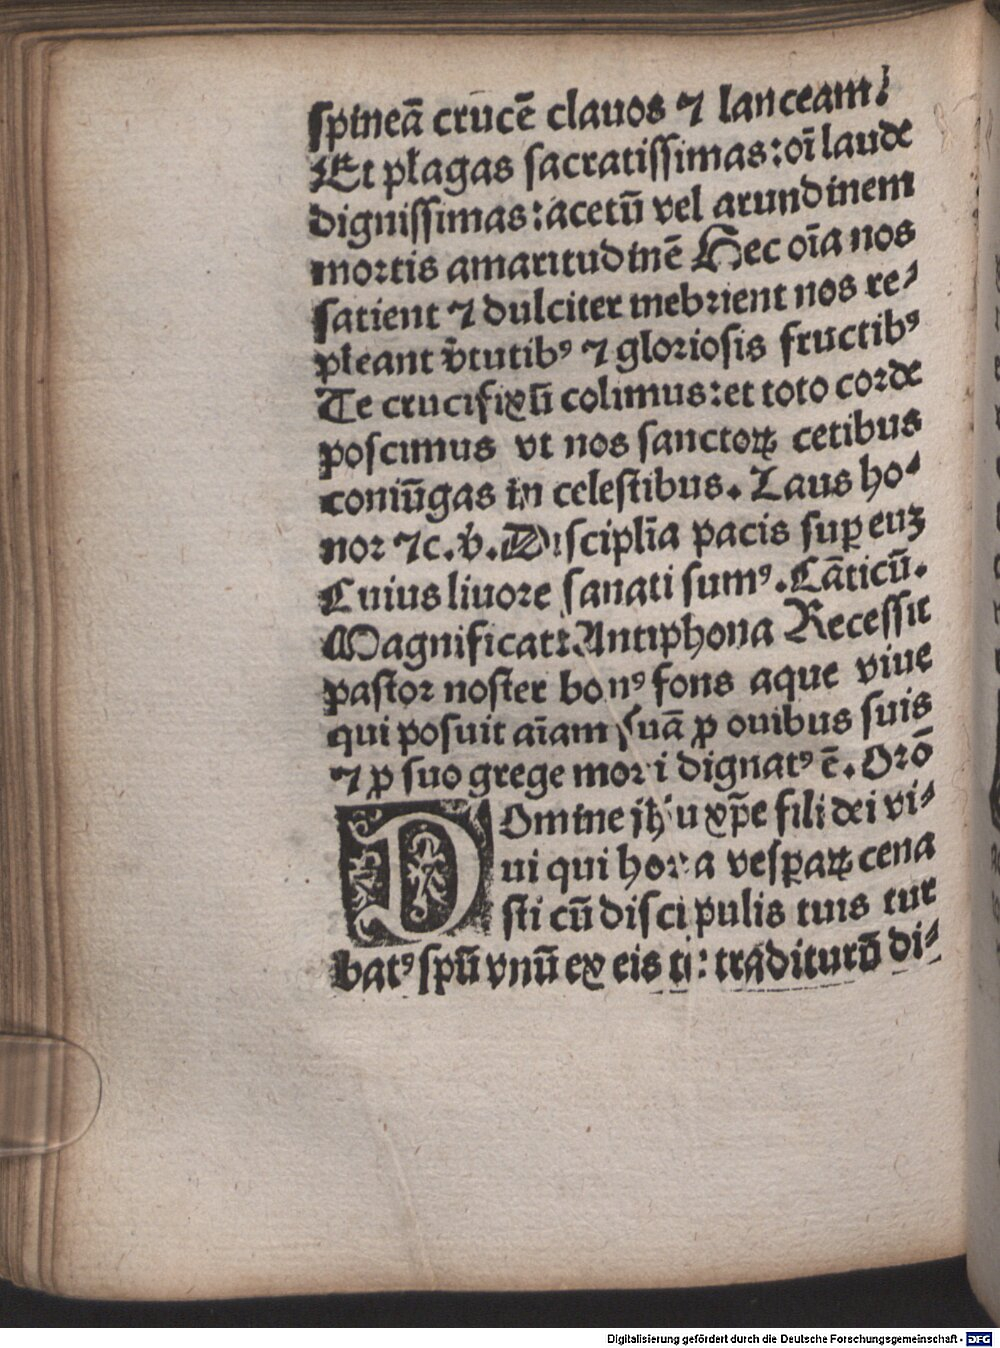 spineā crucē clauos ⁊ lanceam:
Et płagas sacratissimas: oī laude
dignissimas: acetū vel arundinem
mortis amaritudinē Hec oīa nos
satient ⁊ dulciter inebrient nos re-
płeant v̄tutibꝰ ⁊ gloriosis fructibꝰ
Te crucifixū colimus: et toto corde
poscimus vt nos sanctoꝝ cetibus
coniūgas in celestibus. Laus ho-
nor ⁊c. v̓. Disciplīa pacis suꝑ euʒ
Cuius liuore sanati sumꝰ. Cāticū.
Magnificat: Antiphona Recessit
pastor noster bonꝰ fons aque viue
qui posuit aīam suā ꝓ ouibus suis
⁊ ꝓ suo grege mori dignatꝰ ē. Orō
Domine jh̓u xp̄e fili dei vi-
ui qui hora vesꝑaꝝ cena
sti cū discipulis tuis tur
batꝰ spū vnū ex eis ti: traditurū di-
Digitalisierung gefördert durch die Deutsche Forschungsgemeinschaft - DFG